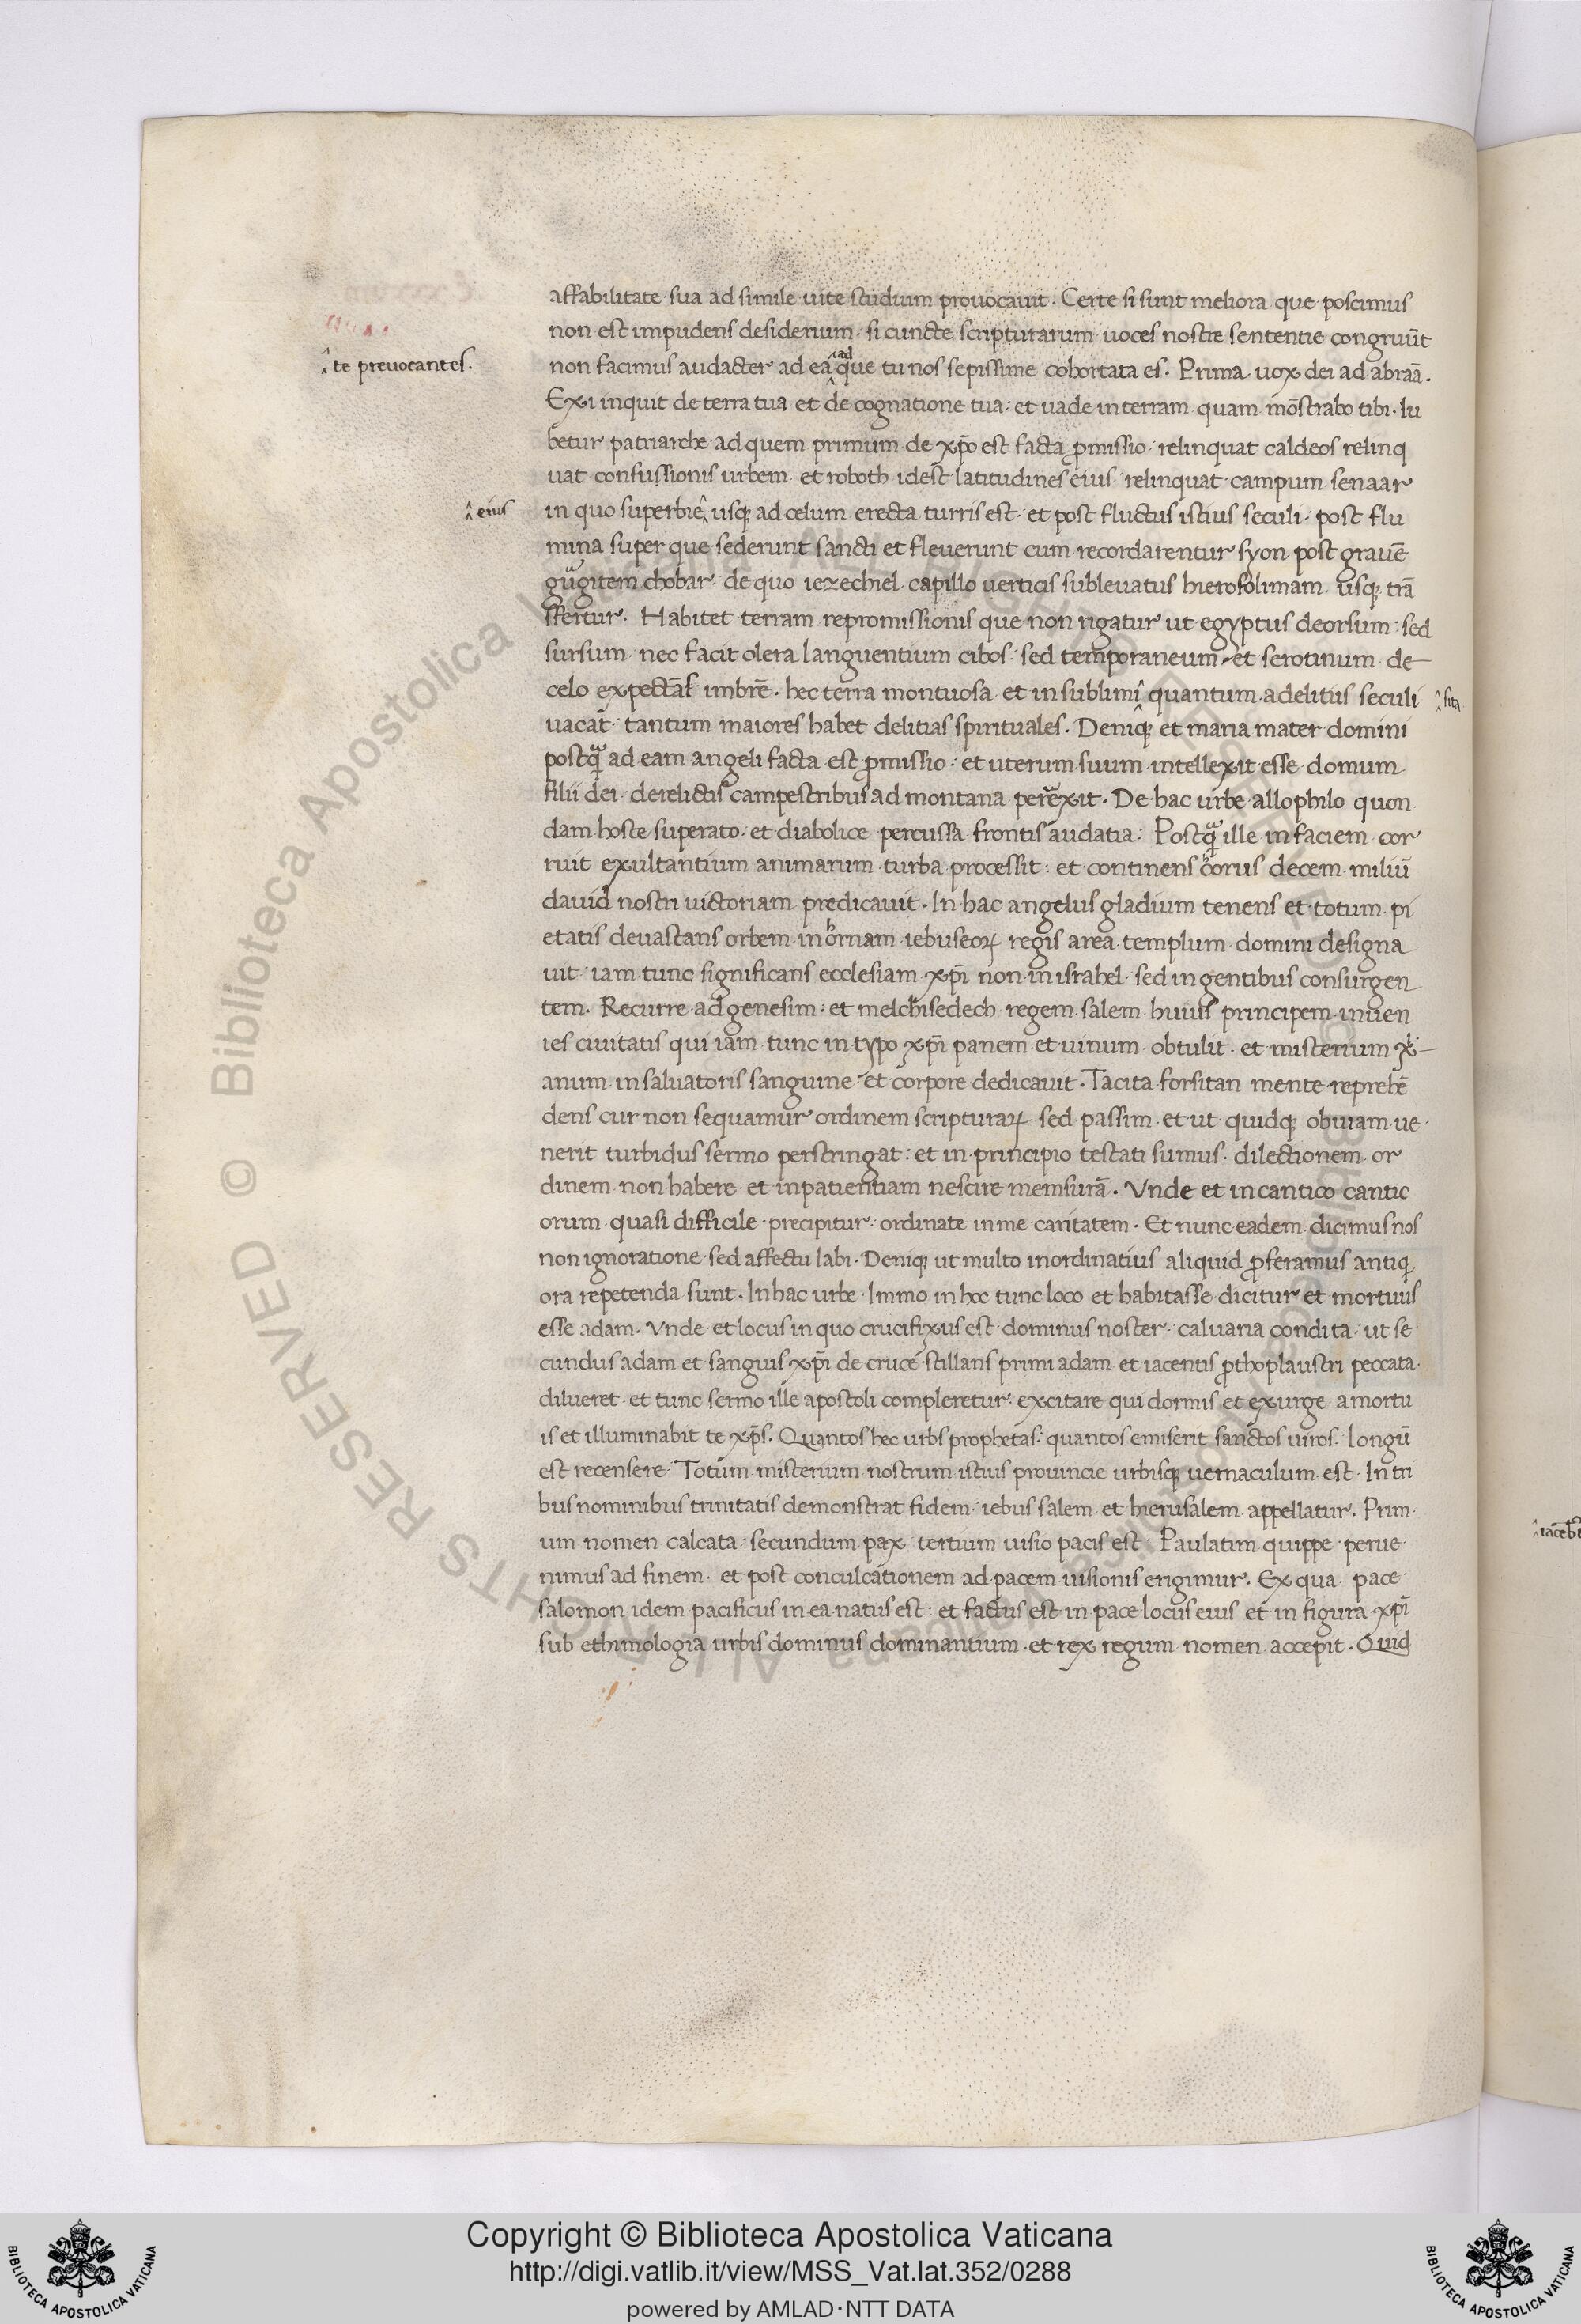 affabilitate sua ad simile uite studium prouocauit. Certe si sunt meliora que poscimus
non est impudens desiderium. si cuncte scripturarum uoces nostre sententie congruūt
^ te preuocantes.
non facimus audacter ad ea ^ad que tu nos sepissime cohortata es. Prima uox dei ad abraā.
Exi inquit de terra tua et de cognatione tua: et uade in terram quam mōstrabo tibi. Iu
betur patriarche ad quem primum de xp̄o est facta ꝓmissio. relinquat caldeos relinq
uat confussionis urbem et roboth idest latitudines eius. relinquat campum senaar
^ eius
in quo superbie^ usqꝫ ad celum erecta turris est. et post fluctus istius seculi. post flu
mina super que sederunt sancti et fleuerunt cum recordarentur syon post grauē
gugitem chobar. de quo iezechiel capillo uerticis subleuatus hierosolimam usqꝫ trā
sfertur. Habitet terram repromissionis que non rigatur ut egyptus deorsum: sed
sursum nec facit olera languentium cibos. sed temporaneum et serotinum de
celo expectās imbrē. hec terra montuosa et in sublimi^ quantum a delitiis seculi
^ sita
uacat tantum maiores habet delitias spirituales. Deniqꝫ et maria mater domini
postqᷓ ad eam angeli facta est ꝓmissio: et uterum suum intellexit esse domum
filii dei. derelictis campestribus ad montana perrexit. De hac urbe allophilo quon
dam hoste superato. et diabolice percussa frontis audatia. Postqᷓ ille in faciem cor
ruit exultantium animarum turba processit: et continens chorus decem miliū
dauid nostri uictoriam predicauit. In hac angelus gladium tenens et totum pi
etatis deuastans orbem in hornam iebuseoꝝ regis area templum domini designa
uit iam tunc significans ecclesiam xp̄i non in israhel sed in gentibus consurgen
tem. Recurre ad genesim: et melchisedech regem salem huius principem inuen
ies ciuitatis qui iam tunc in typo xp̄i panem et uinum obtulit. et misterium xp̄i
anum in saluatoris sanguine et corpore dedicauit. Tacita forsitan mente reprehē
dens cur non sequamur ordinem scripturaꝝ sed passim et ut quidqꝫ obuiam ue
nerit turbidus sermo perstringat: et in principio testati sumus. dilectionem or
dinem non habere et inpatientiam nescire memsurā. Vnde et in cantico cantic
orum quasi difficile precipitur: ordinate in me caritatem. Et nunc eadem dicimus nos
non ignoratione sed affectu labi. Deniqꝫ ut multo inordinatius aliquid ꝓferamus antiq
ora repetenda sunt. In hac urbe. Immo in hoc tunc loco et habitasse dicitur et mortuus
esse adam. Vnde et locus in quo crucifixus est dominus noster. caluaria condita. ut se
cundus adam et sanguis xp̄i de cruce stillans primi adam et iacentis ꝓthoplaustri peccata
dilueret et tunc sermo ille apostoli compleretur. excitare qui dormis et exurge a mortu
is et illuminabit te xp̄s. Quantos hec urbs prophetas: quantos emiserit sanctos uiros. longū
est recensere. Totum misterium nostrum istius prouincie urbisqꝫ uernaculum est. In tri
bus nominibus trinitatis demonstrat fidem. iebus salem et hierusalem appellatur. Prim
um nomen calcata secundum pax tertium uisio pacis est. Paulatim quippe perue
nimus ad finem. et post conculcationem ad pacem uisionis erigimur. Ex qua pace
salomon idem pacificus in ea natus est: et factus est in pace locus eius et in figura xp̄i
sub ethimologia urbis dominus dominantium et rex regum nomen accepit. Quid
Copyright © Biblioteca Apostolica Vaticana
http://digi.vatlib.it/view/MSS_Vat.lat.352/0288
powered by AMLAD·NTT DATA
BIBLIOTECA APOSTOLICA VATICANA
BIBLIOTECA APOSTOLICA VATICANA